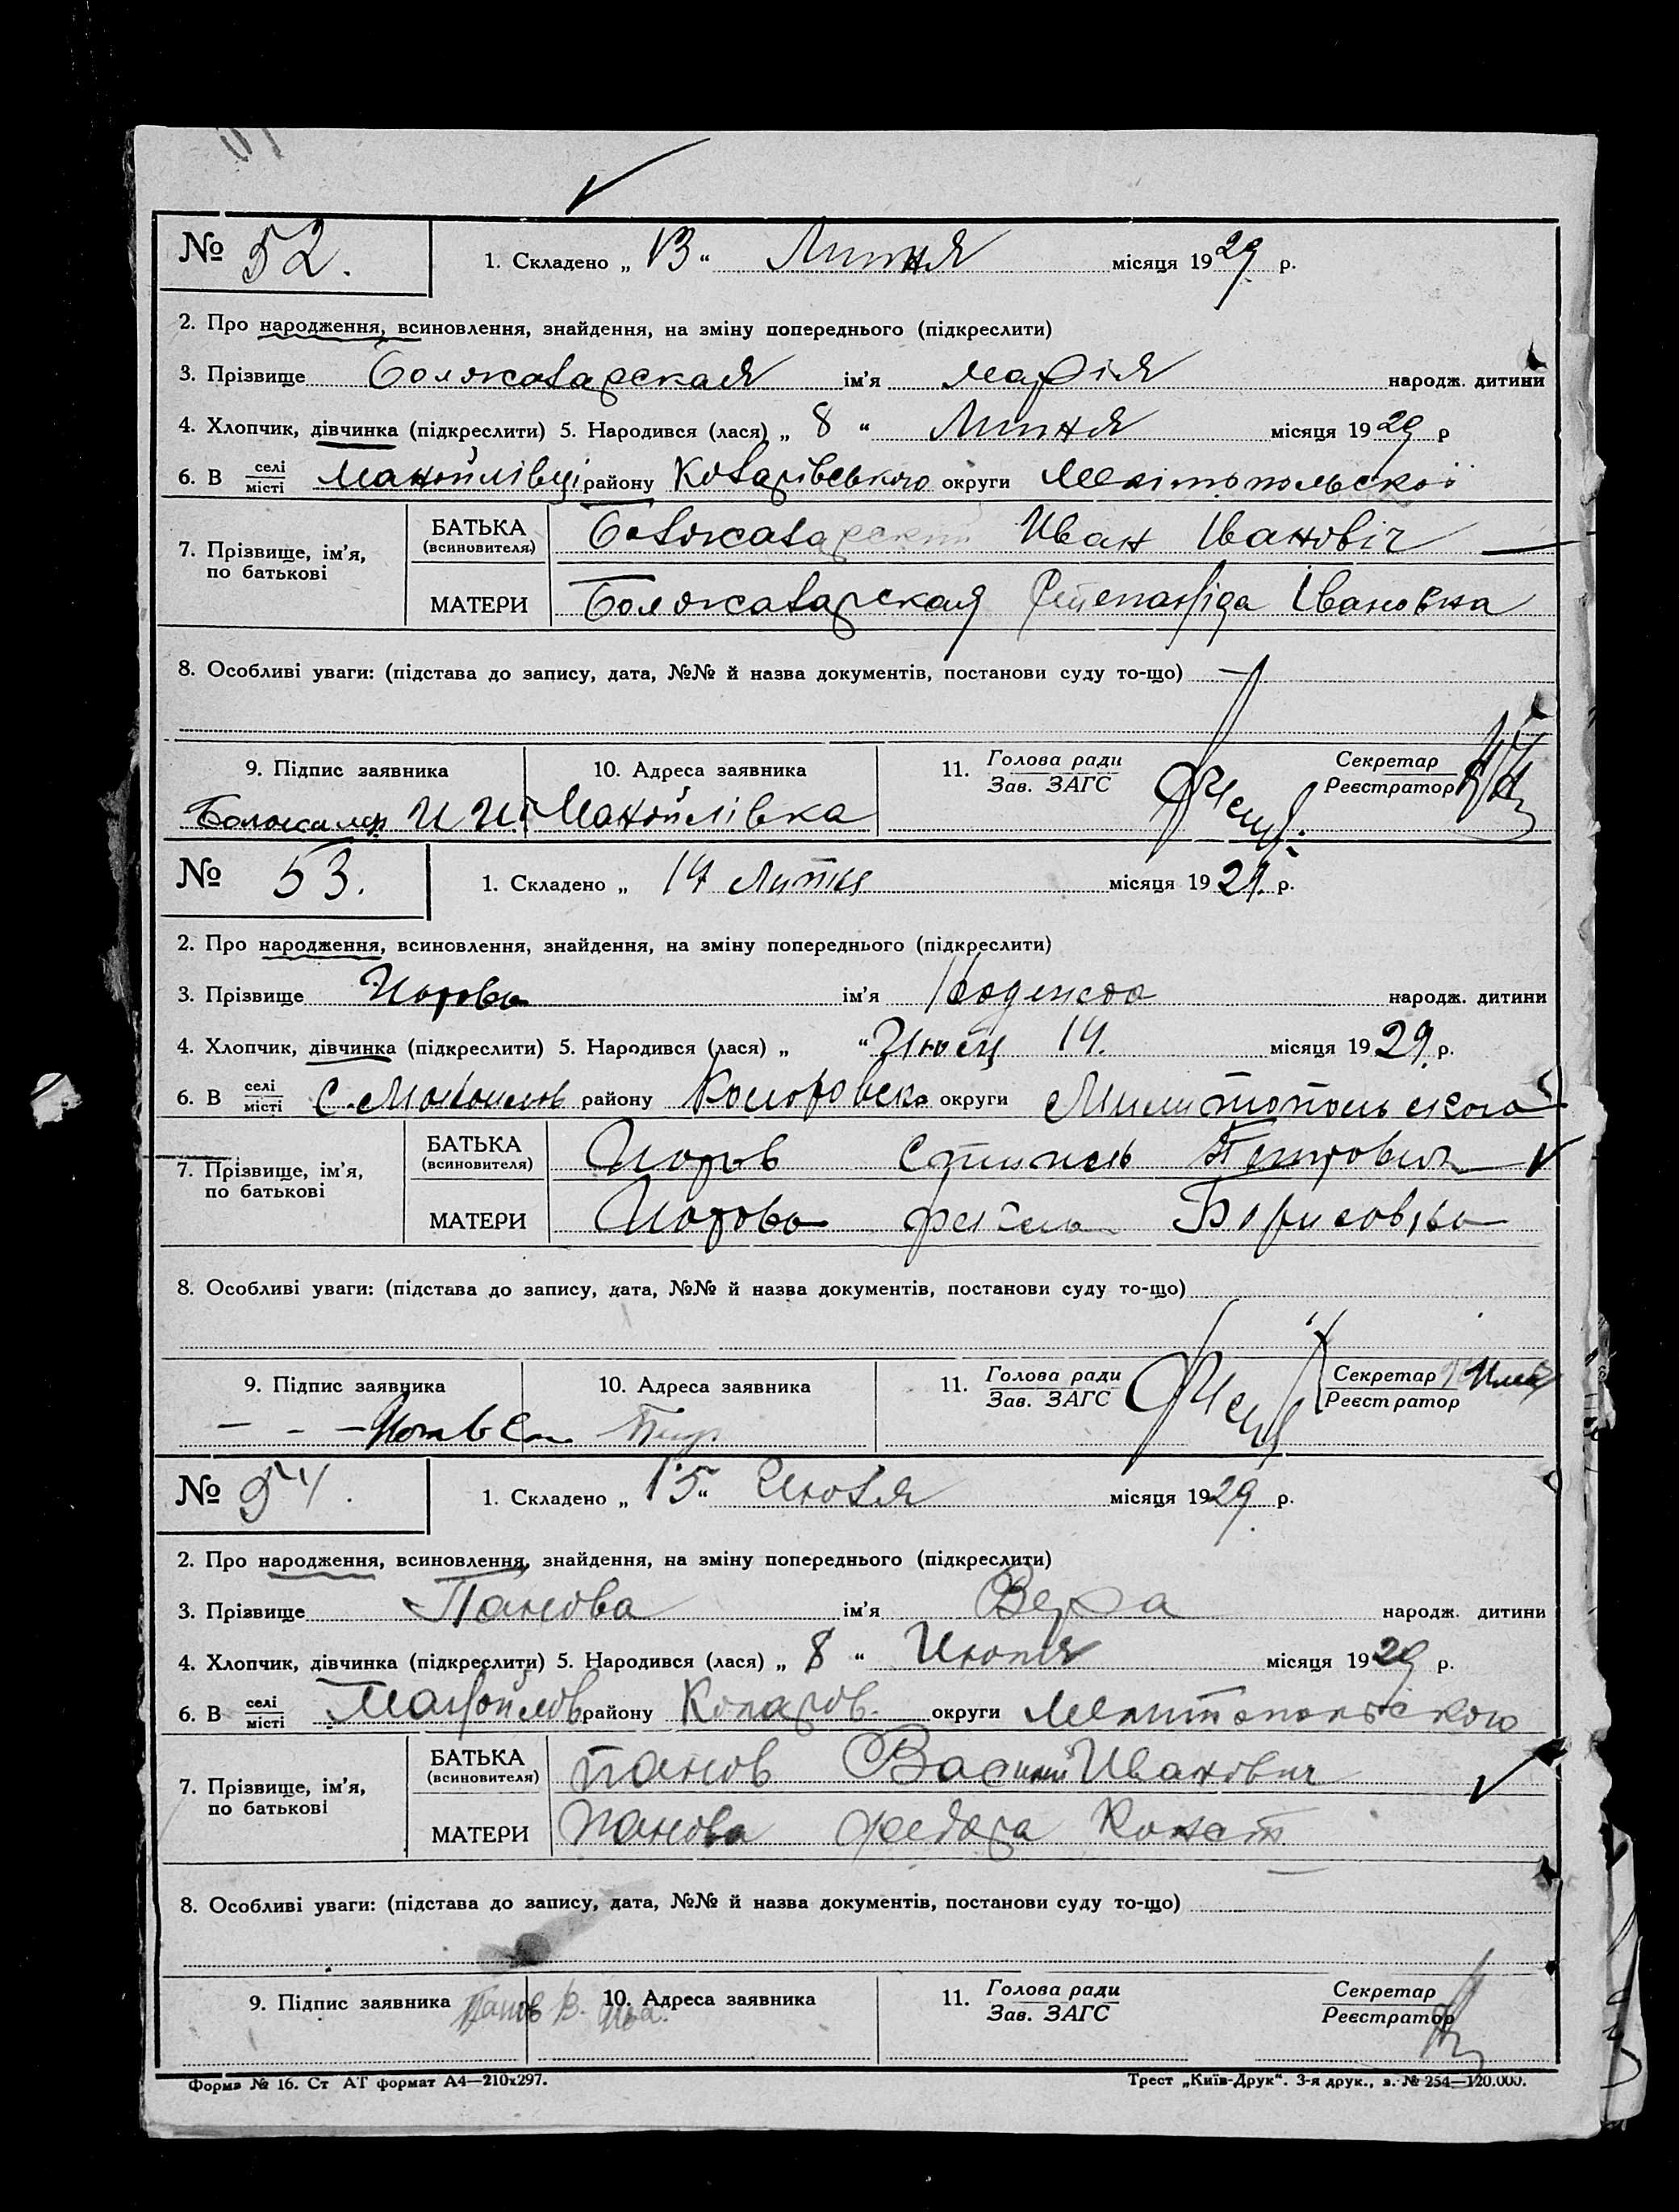 № 52. 1. Складено „ 13 “ Липня місяця 1929 р.
2. Про народження, всиновлення, знайдення, на зміну попереднього (підкреслити)
3. Прізвище ім'я Марія народж. дитини
4. Хлопчик, дівчинка (підкреслити) 5. Народився (лася) „ 8 “ Липня місяця 1929 р
6. В селі місті Манойлівці району округи Мелітопольской
7. Прізвище, ім'я, по батькові
БАТЬКА (всиновителя) Иван Івановіч
МАТЕРИ Степаніда Івановна
8. Особливі уваги: (підстава до запису, дата, №№ й назва документів, постанови суду то-що)
9. Підпис заявника 10. Адреса заявника 11. Голова ради Зав. ЗАГС Секретар Реєстратор
И И. Манойлівка
№ 53. 1. Складено „ 14 липня місяця 1929. р.
2. Про народження, всиновлення, знайдення, на зміну попереднього (підкреслити)
3. Прізвище ім'я Надежда народж. дитини
4. Хлопчик, дівчинка (підкреслити) 5. Народився (лася) „ “ 14. місяця 1929. р.
6. В селі місті с. району округи Милитопольского
7. Прізвище, ім'я, по батькові
БАТЬКА (всиновителя) Петрович
МАТЕРИ Борисовна
8. Особливі уваги: (підстава до запису, дата, №№ й назва документів, постанови суду то-що)
9. Підпис заявника 10. Адреса заявника 11. Голова ради Зав. ЗАГС Секретар Реєстратор
№ 54. 1. Складено „ 15 “ Июля місяця 1929 р.
2. Про народження, всиновлення, знайдення, на зміну попереднього (підкреслити)
3. Прізвище Панова ім'я Вера народж. дитини
4. Хлопчик, дівчинка (підкреслити) 5. Народився (лася) „ 8 “ Июля місяця 1929 р.
6. В селі місті Манойлов району округи Мелитопольского
7. Прізвище, ім'я, по батькові
БАТЬКА (всиновителя) Панов Василий Иванович
МАТЕРИ Панова Федора Конст
8. Особливі уваги: (підстава до запису, дата, №№ й назва документів, постанови суду то-що)
9. Підпис заявника Панов В. Ива. 10. Адреса заявника 11. Голова ради Зав. ЗАГС Секретар Реєстратор
Форма № 16. Ст АТ формат А4—210х297. Трест „Київ-Друк“. 3-я друк., з. № 254—120.000.